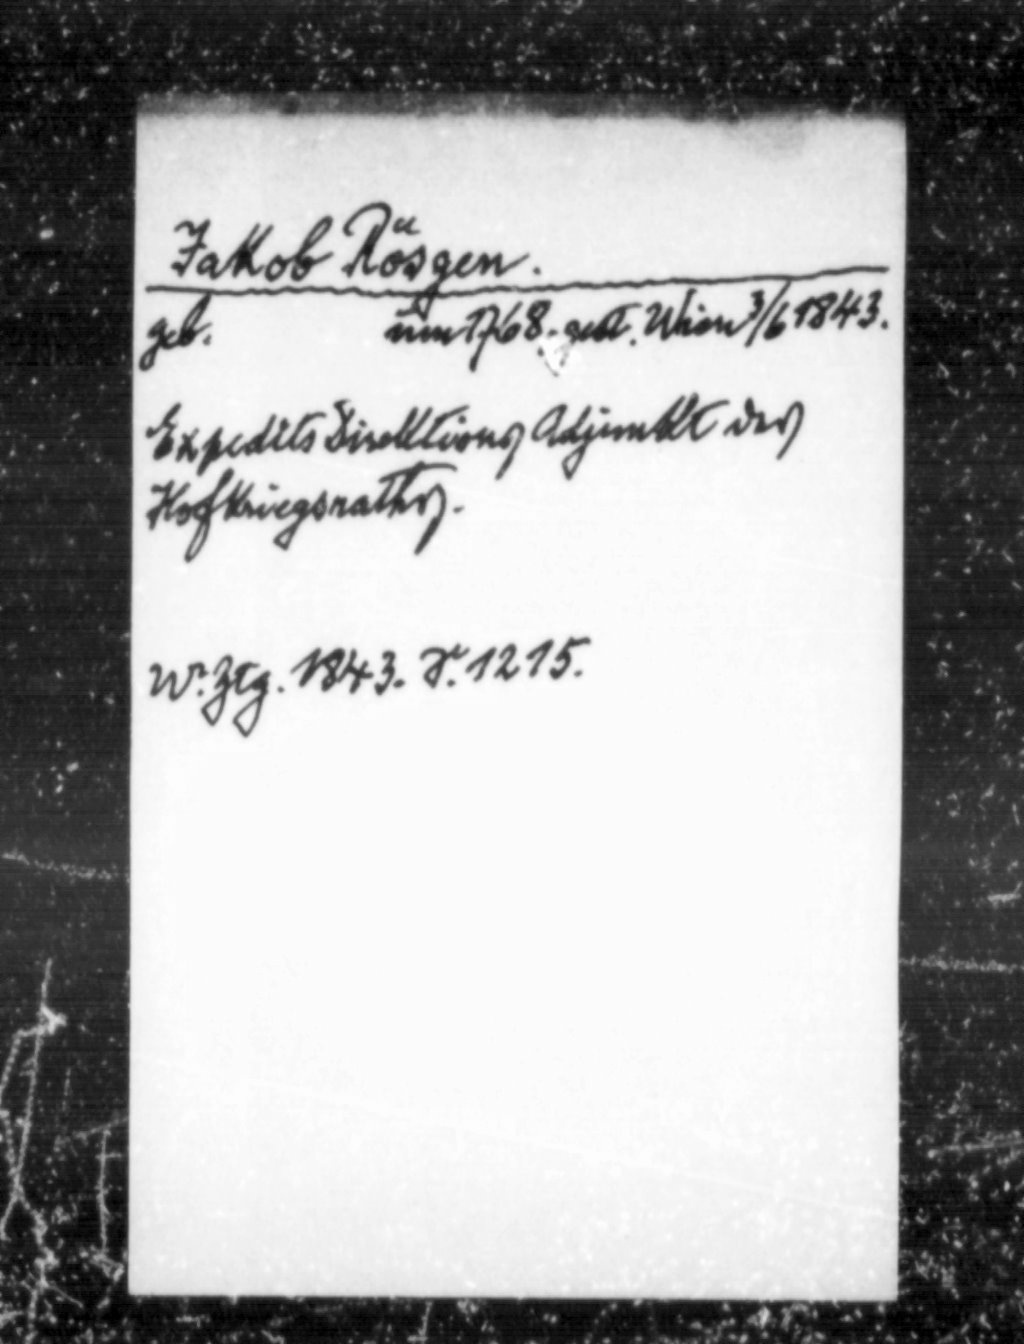 Jakob Rösgen.
geb. um 1768. gest. Wien 3/6 1843.
Expedits Direktions Adjunkt des
Hofkriegsrathes.
Wr. Ztg. 1843. S. 1215.